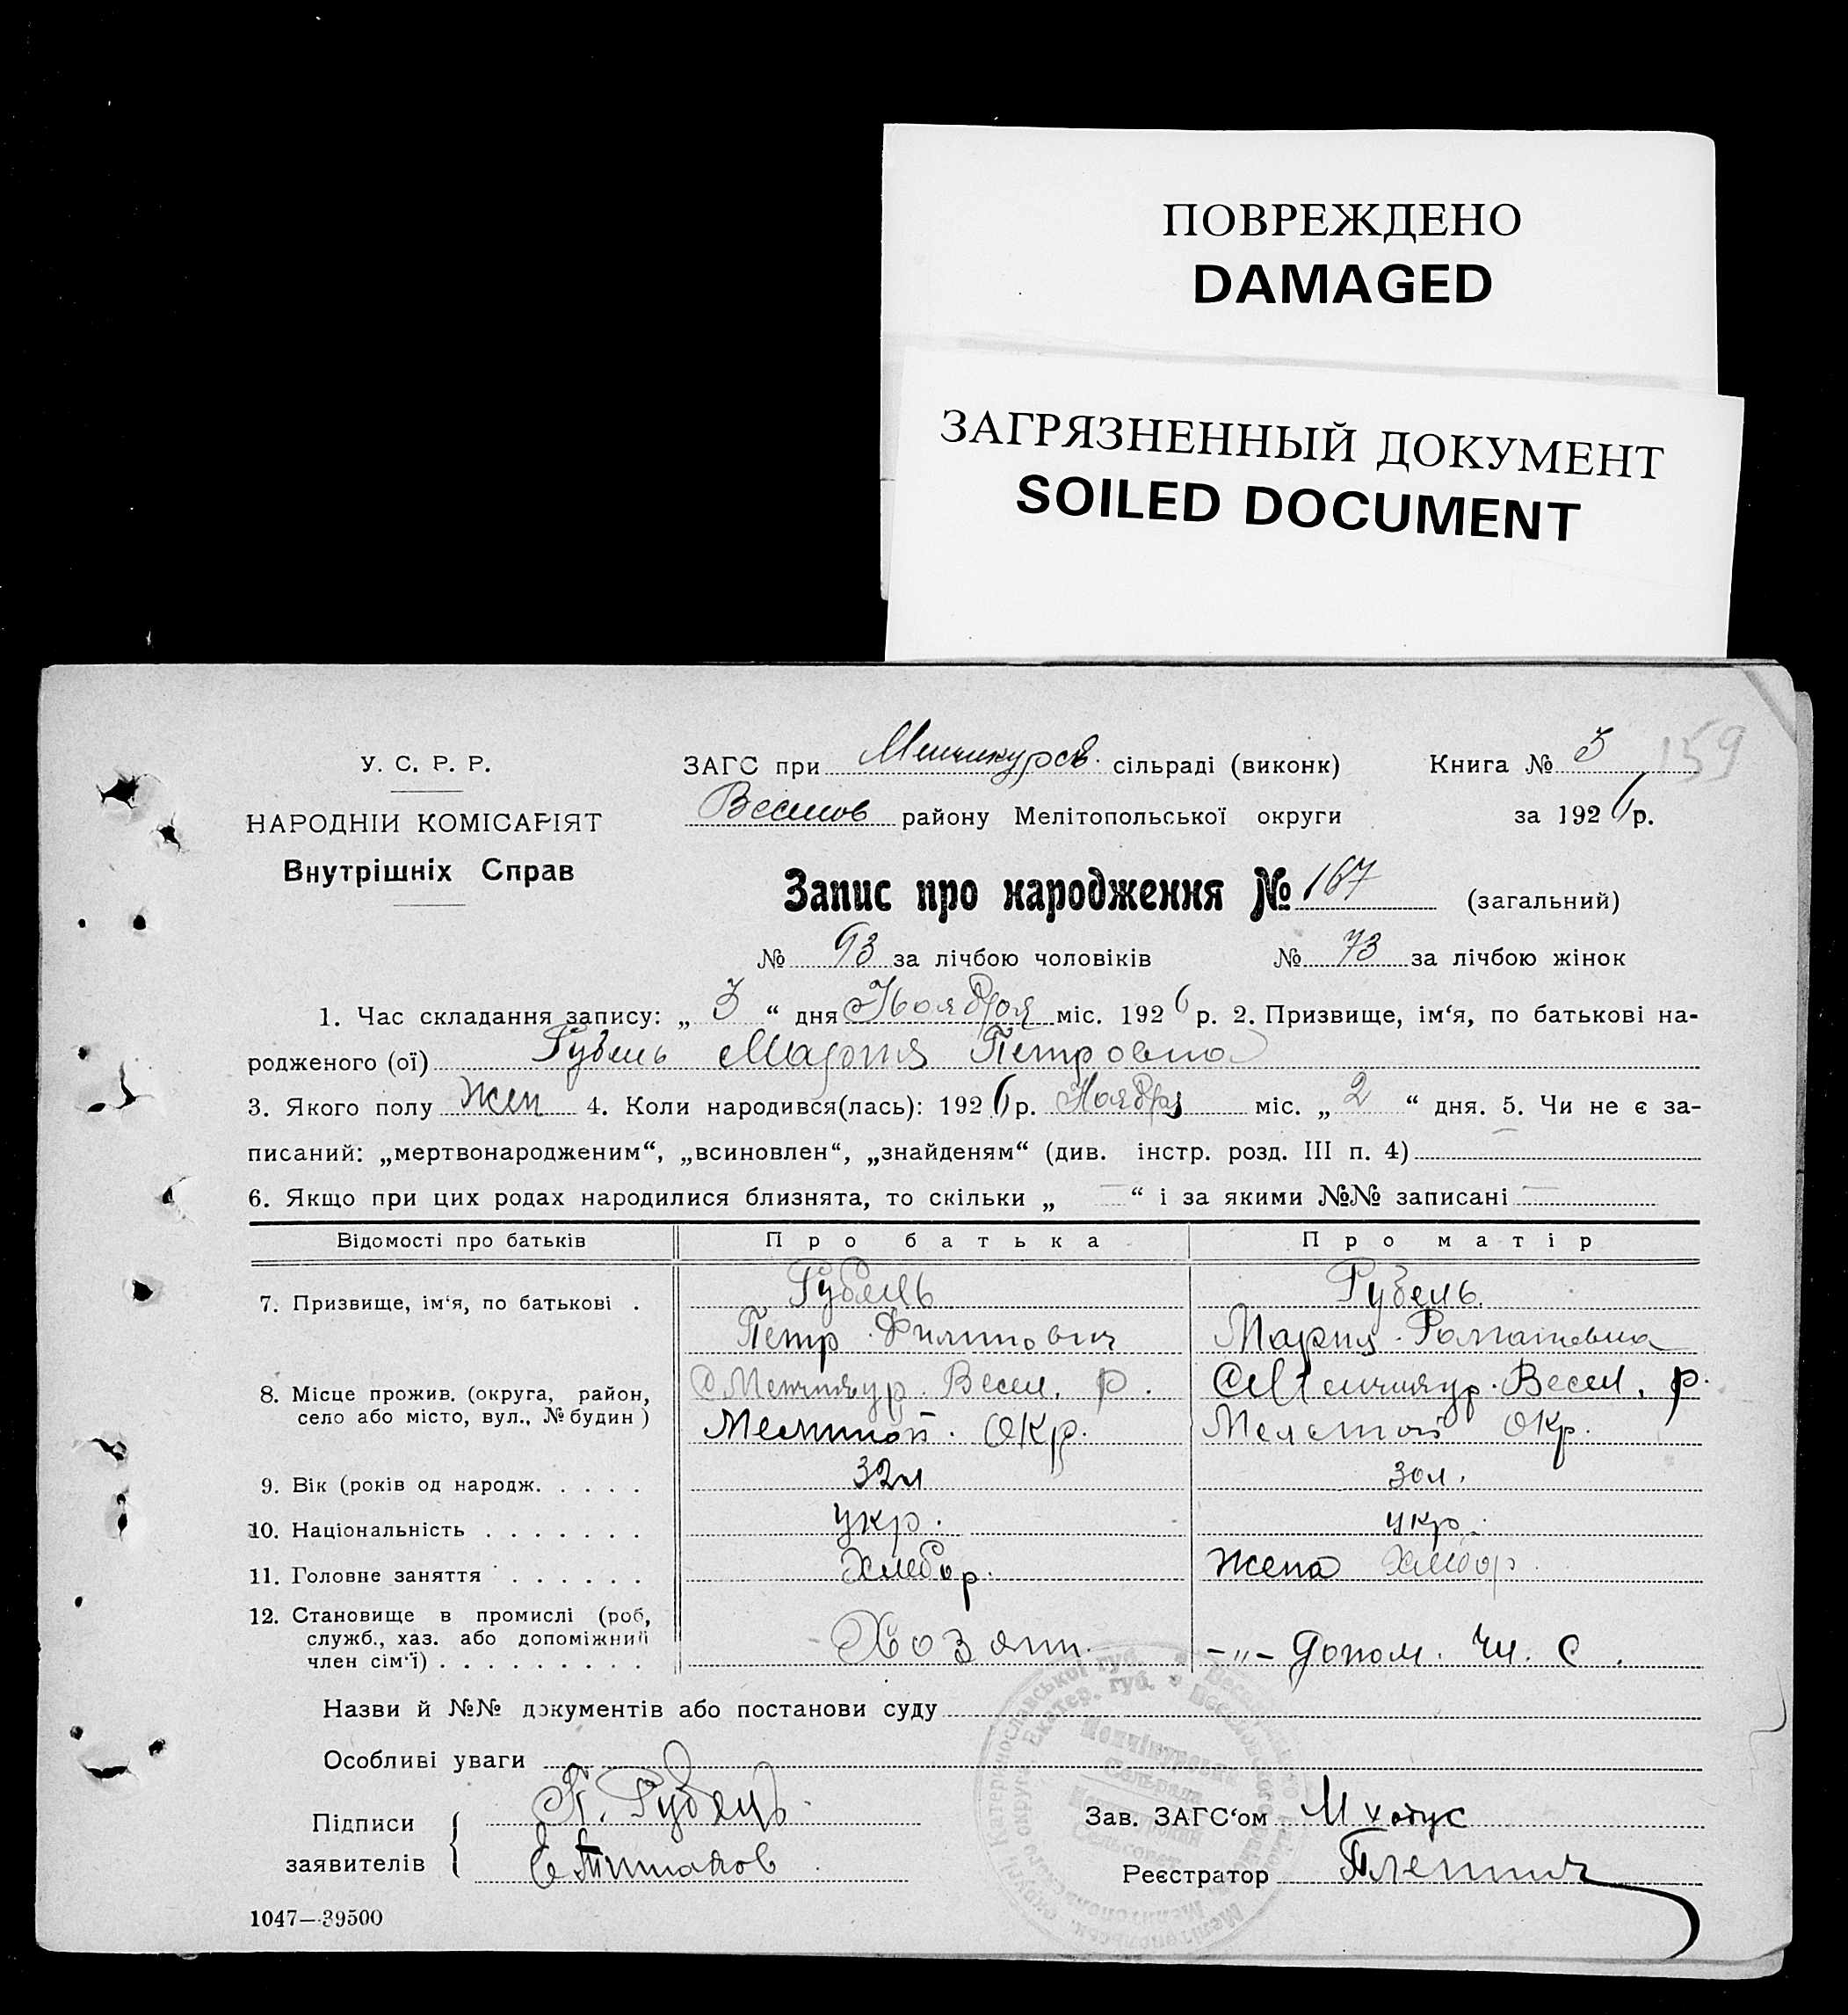 ПОВРЕЖДЕНО
DAMAGED
ЗАГРЯЗНЕННЫЙ ДОКУМЕНТ
SOILED DOCUMENT
159
У. С. Р. Р.
НАРОДНІЙ КОМІСАРІЯТ
Внутрішніх Справ
ЗАГС при Менчикуров. сільраді (виконк) Книга № 3
Веселов району Мелітопольської округи за 1926 р.
Запис про народження № 167 (загальний)
№ 93 за лічбою чоловіків № 73 за лічбою жінок
1. Час складання запису: „ 3 “ дня Ноября міс. 1926 р. 2. Призвище, ім‘я, по батькові на-
родженого (ої) Рубель Мария Петровна
3. Якого полу жен 4. Коли народився(лась): 1926 р. Ноября міс. „ 2 “ дня. 5. Чи не є за-
писаний: „мертвонародженим“, „всиновлен“, „знайденям“ (див. інстр. розд. III п. 4)
6. Якщо при цих родах народилися близнята, то скільки „ — “ і за якими №№ записані —
Відомості про батьків Про батька Про матір
7. Призвище, ім‘я, по батькові . Рубель Рубель
Петр Филипович Мария Романовна
8. Місце прожив. (округа, район, с Менчикур. Весел. р. с Менчикур. Весел. р.
село або місто, вул., № будин) Мелитоп. окр. Мелитоп окр.
9. Вік (років од народж. . . . . 32 л 30 л.
10. Національність . . . . . . . укр. укр.
11. Головне заняття . . . . . . Хлебор. жена хлебор.
12. Становище в промислі (роб,
служб., хаз. або допоміжний Хозяин. -„- допом. чл. с.
член сім‘ї) . . . . . . . . .
Назви й №№ документів або постанови суду
Особливі уваги
Підписи П. Рубель Зав. ЗАГС‘ом
заявителів Реєстратор
1047—39500